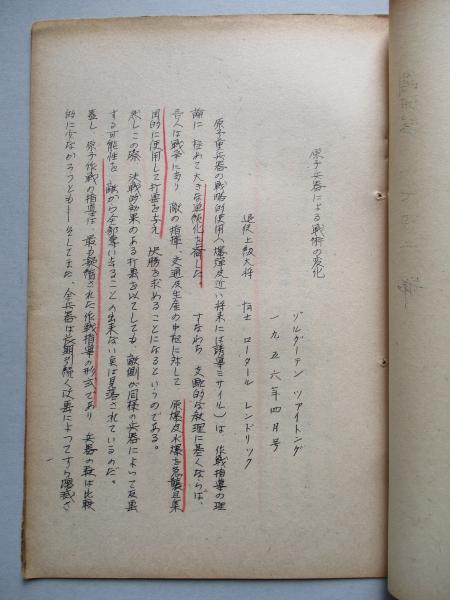 原子兵器による戦術の変化
ゾルダーテン ツアイトング
一九五六年四月号
退役上級大将 博士 ロータール レンドリック
原子重兵器の戦略的使用(爆弾及近い将来には誘導ミサイル)は 作戦指導の理
論に 極めて大きな単純化を齎した。 すなわち 支配的な教理に基くならば、
吾人は戦争にあり 敵の指揮、交通及生産の中枢に対して 原爆及水爆を急襲且集
団的に使用して打撃を与え 決勝を求めることになるというのである。
然しこの際 決戦的効果のある打撃を以てしても、敵側が同様の兵器によって反撃
する可能性を 敵から全部奪い去ることの出来ない点は見落されているのだ。
蓋し、原子作戦の指導は、最も凝縮された作戦指導の形式であり 兵器の数は比較
的に少なかろうとも――そしてまた、全兵器は長期に続く反撃によってすら潰滅さ